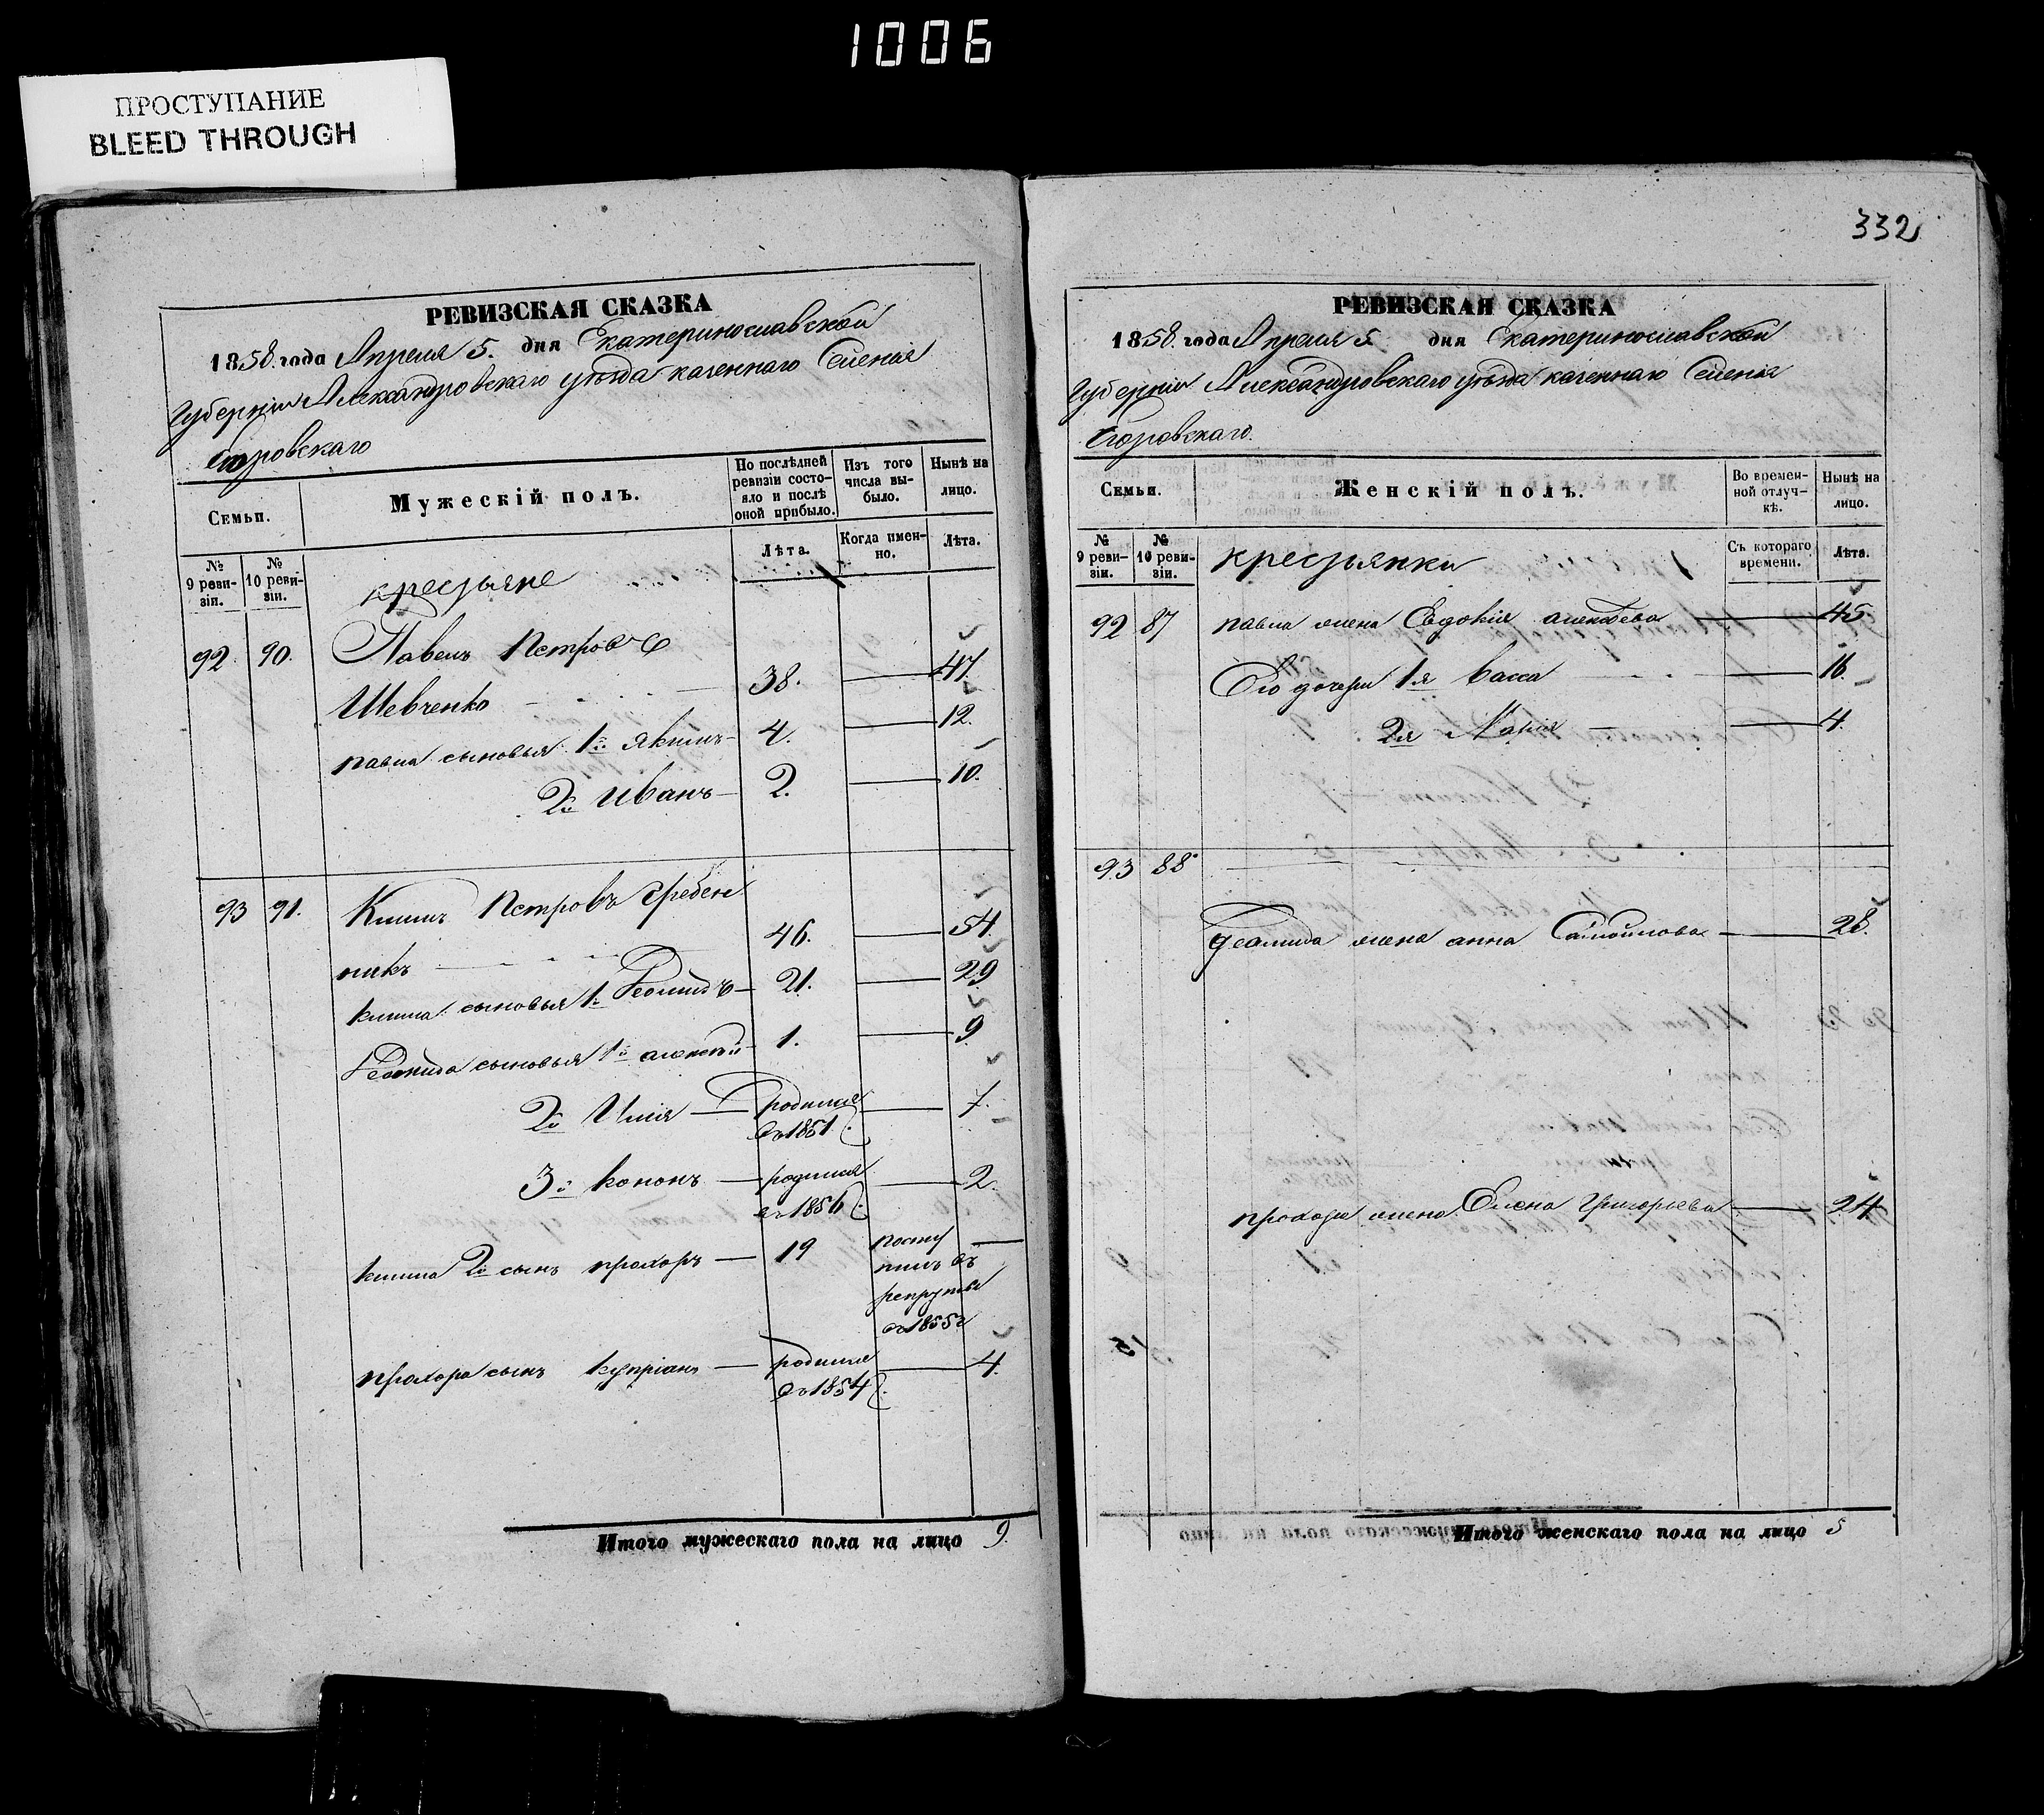 1006
ПРОСТУПАНИЕ
BLEED THROUGH
РЕВИЗСКАЯ СКАЗКА
1858. года Апреля 5. дня Екатеринославской
Губерніи Александровскаго уѣзда казеннаго Селенія
Егоровскаго
Семьи.
Мужескій полъ.
По послѣдней ревизіи состояло и послѣ оной прибыло.
Изъ того числа выбыло.
Нынѣ на лицо.
№ 9 ревизіи.
№ 10 ревизіи.
крестьяне
Лѣта.
Когда именно.
Лѣта.
92. 90. Павелъ Петровъ
Шевченко 38. 47.
павла сыновья 1й Якимъ 4. 12.
2й Иванъ 2. 10.
93 91. Климъ Петровъ Гребен
никъ 46. 54.
клима сыновья 1й Леонидъ 21. 29
Леонида сыновья 1й алексѣй 1. 9
2й Илія родился въ 1851. 7.
3й кононъ родился въ 1856. 2.
клима 2й сынъ прохоръ 19 посту
пилъ въ
рекруты
въ 1855 г
прохора сынъ купріанъ родился въ 1854. 4.
Итого мужескаго пола на лицо 9.
332
РЕВИЗСКАЯ СКАЗКА
1858. года Апреля 5 дня Екатеринославской
Губерніи Александровскаго уѣзда казеннаго Селенія
Егоровскаго.
Семьи.
Женскій полъ.
Во временной отлучкѣ.
Нынѣ на лицо.
№ 9 ревизіи.
№ 10 ревизіи.
крестьянки
Съ котораго времени.
Лѣта.
92 87 павла жена Евдокія алексѣева 45
Его дочери 1я васса 16.
2я Марія 4.
93 88
Леонида жена анна Самойлова 28.
прохора жена Елена Григорьева 24
Итого женскаго пола на лицо 5